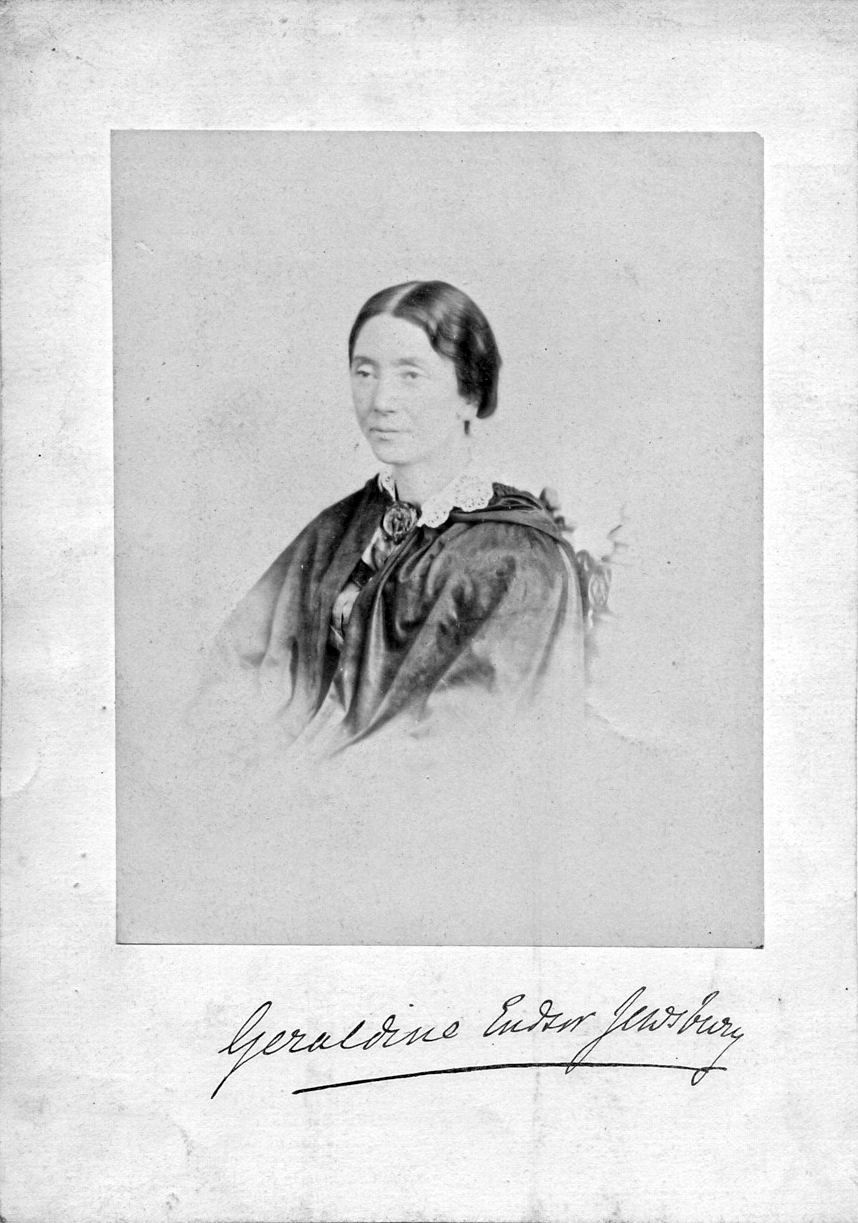 Geraldine Endsor Jewsbury